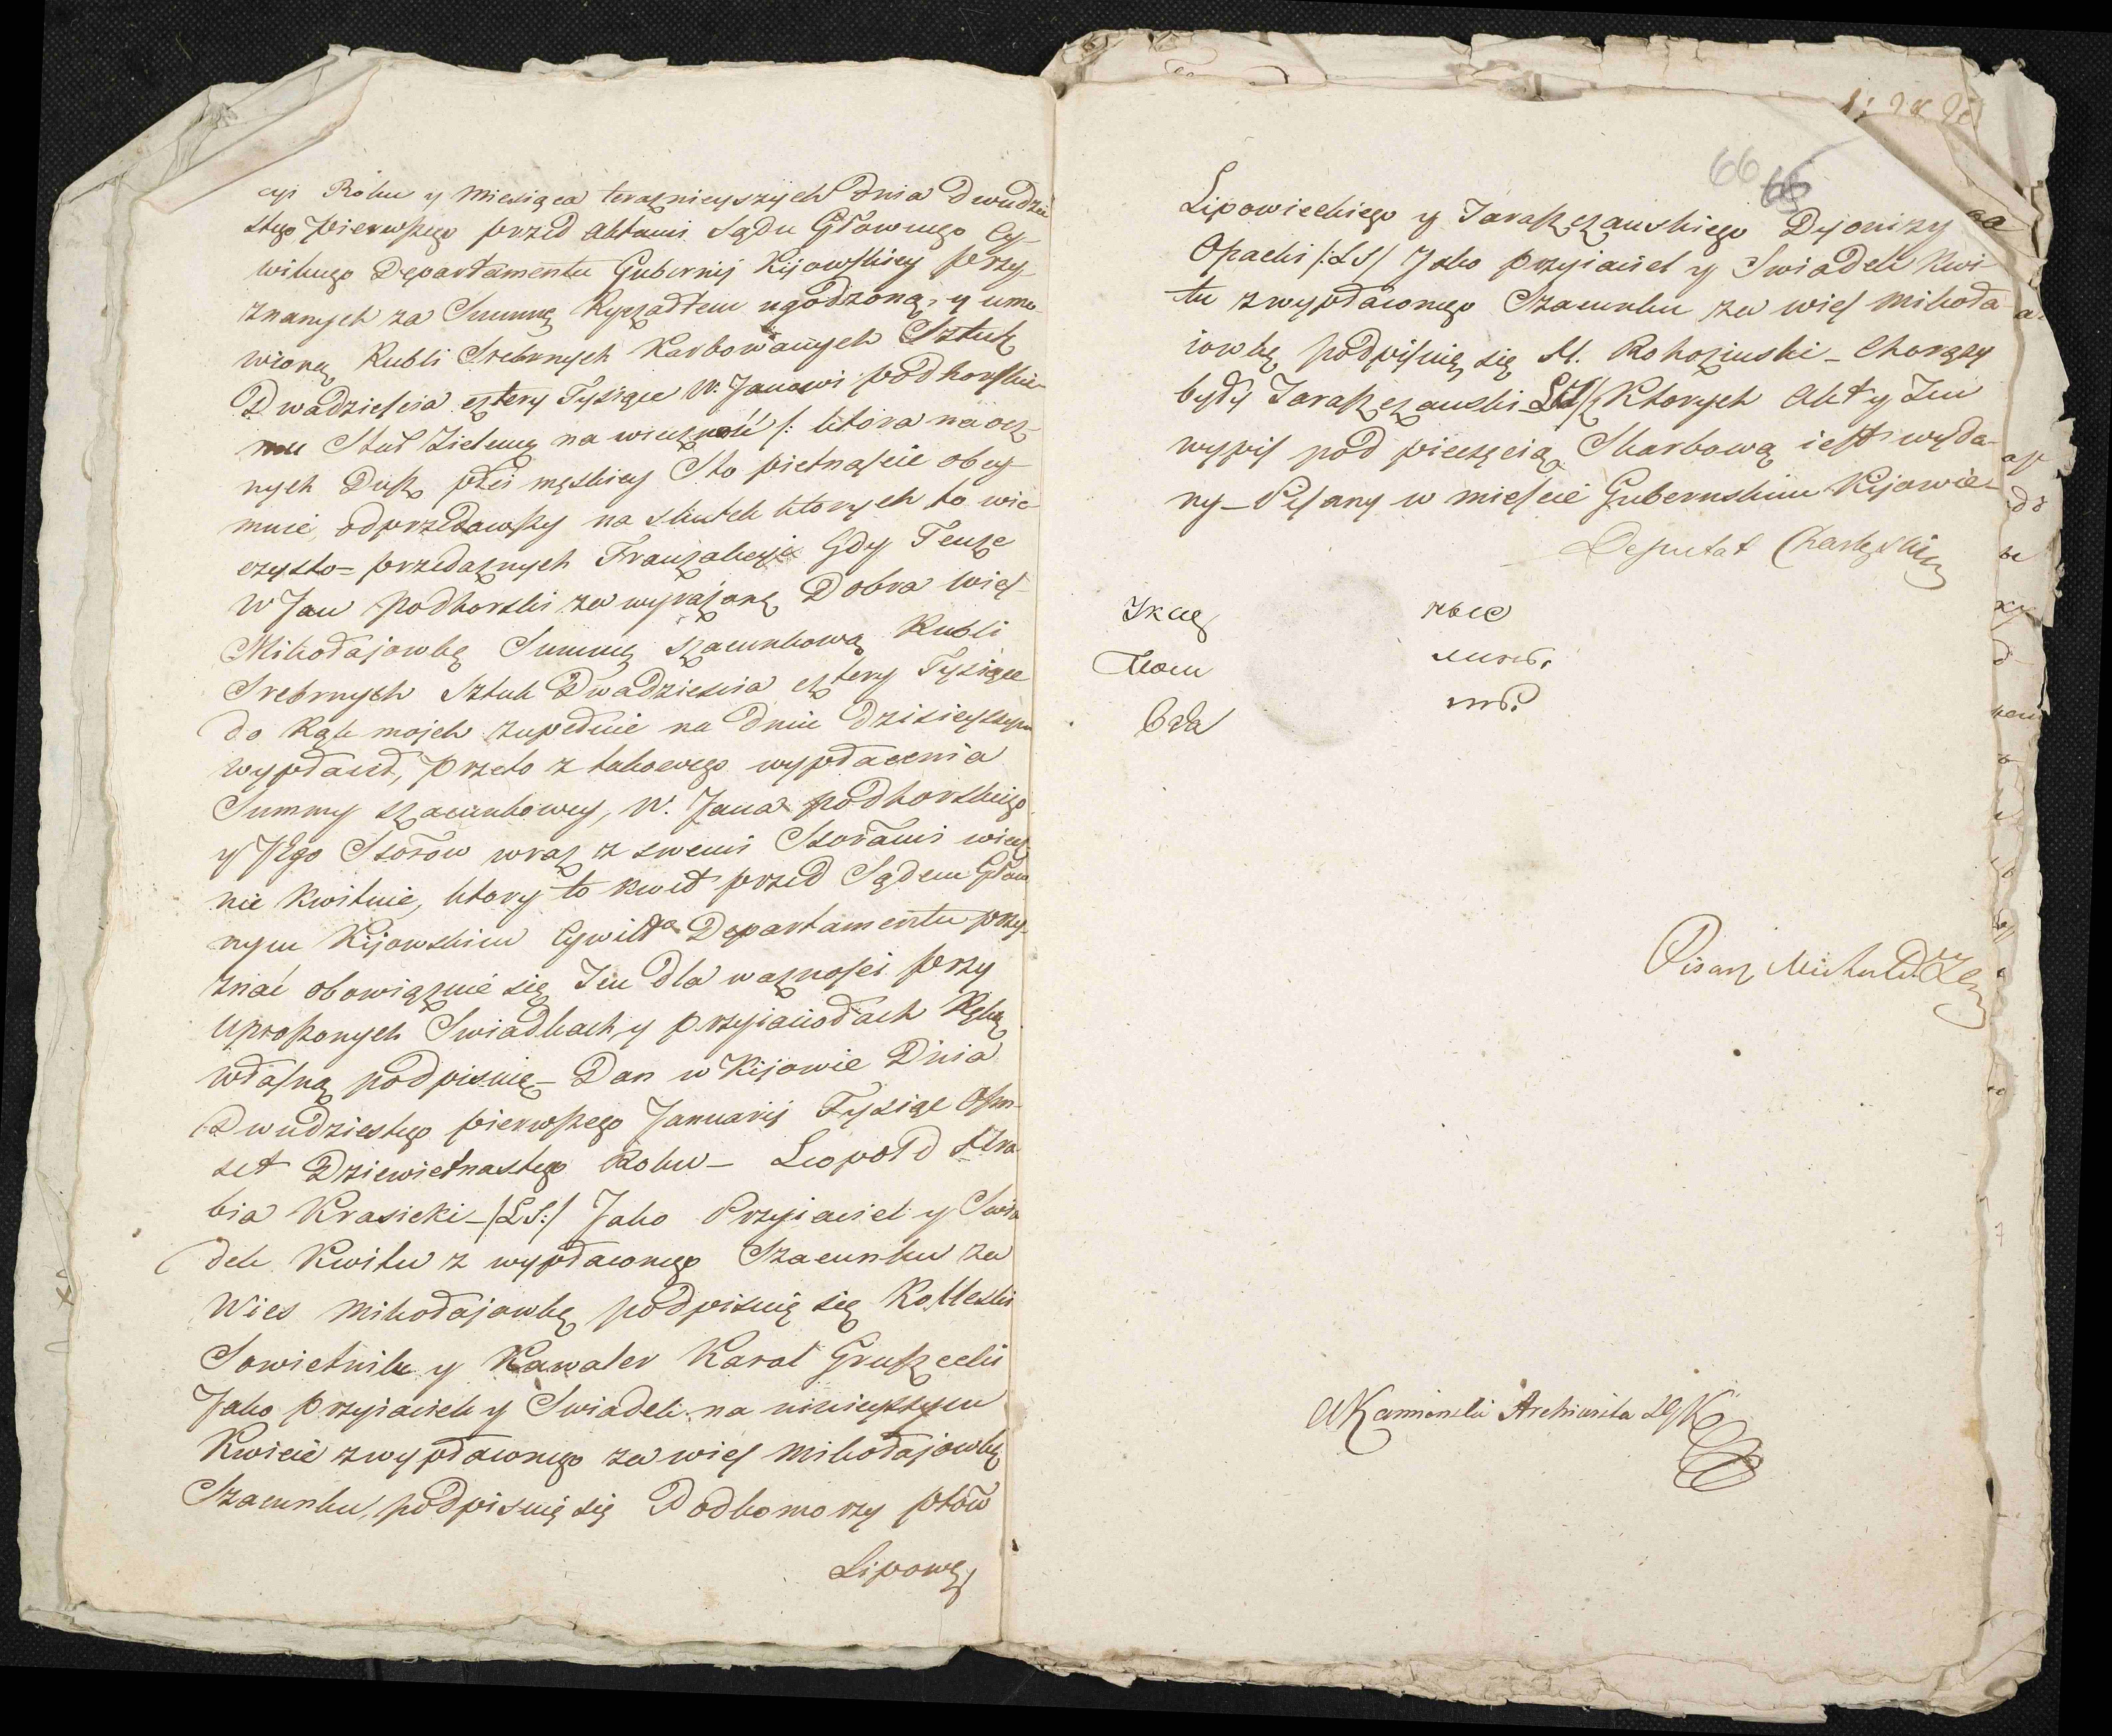 cyi Roku y Miesiąca teraznieyszych Dnia Dwudzie
stego pierwszego przed Aktami Sądu Głownego Cy-
wilnego Departamentu Gubernij Kijowskiey przy
znanych za Summę Ryczałtem ugodzoną, y umo-
wioną Rubli Srebrnych Karbowanych Sztuk
Dwadziescia cztery Tysiące W. Janowi podhorskie-
mu na wieczność /: ktora na ocz
nych Dusz płci męskiey Sto pietnaście obey-
muie odprzedawszy na skutek ktorych to wie-
czysto=przedażnych Tranzakcyi Gdy Tenże
W Jan podhorski za wyrażoną Dobra wieś
Mikołajowkę Summę szacunkową Rubli
Srebrnych Sztuk Dwadziescia cztery Tysiące
do Rąk mojch zupełnie na Dniu Dzisieyszym
wypłacił, przeto z takowego wypłacenia
Summy szacunkowey, W. Jana podhorskiego
y Jego Sssorow wraz z swemi Sssorami wiecz
nie Kwituie, ktory to kwit przed Sądem Głow
nym Kijowskim Cywilgo Departamentu przy-
znać obowiązuie się Jen dla ważności przy
Uproszonych Swiadkach y przyiaciołach Ręką
własną podpisuię – Dan w Kijowie Dnia
Dwudziestego pierwszego Januarij Tysiąc Osm-
set Dziewietnastego Roku – Leopold Hra
bia Krasicki – /LS:/ Jako Przyiaciel y Swia
dek Kwitu z wypłaconego Szacunku za
Wies Mikołajowkę podpisuię się Kolleski
Sowietnik y Kawaler Karol Gruszecki
Jako przyiaciel y Swiadek na ninieyszym
Kwicie z wypłaconego za wieś Mikołajowkę
Szacunku, podpisuię się Podkomorzy ptow
Lipowę
66
Lipowieckiego y Taraszczanskiego Dyonizy
Opacki /:LS/ Jako przyiaciel y Swiadek Kwi-
tu z wypłaconego Szacunku za wieś Mikoła-
iowkę podpisuię się M. Rohoziński – Chorąży
były Taraszczanski LS/ Ktorych Akt y Jen
wypis pod pieczęcią Skarbową iest wyda-
ny – Pisany w mieście Gubernskim Kijowie –
Deputat
Pisarz
AKamionski Archiwista